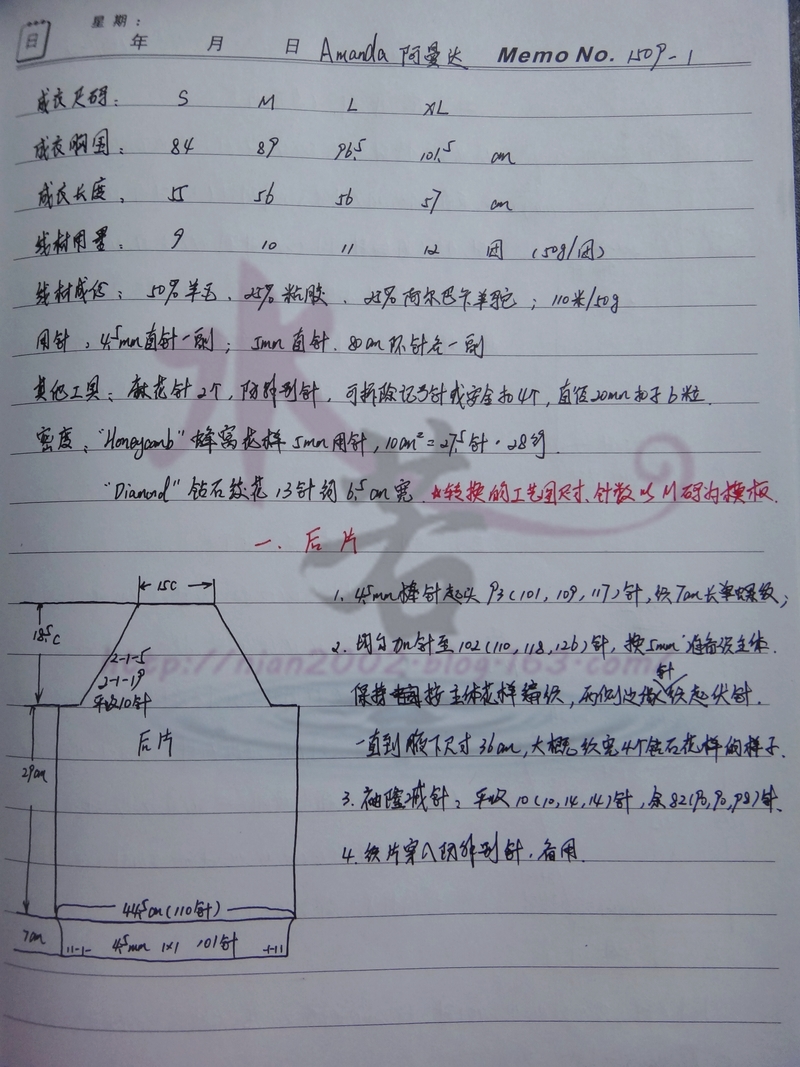 日 星期：
年 月 日 Amanda 阿曼达 Memo No. 1509-1
成衣尺码： S M L XL
成衣胸围： 84 89 96.5 101.5 cm
成衣长度： 55 56 56 57 cm
线材用量： 9 10 11 12 团 (50g/团)
线材成份： 50%羊毛、25%粘胶、25%阿尔巴卡羊驼；110米/50g
用针：4.5mm直针一副；5mm直针.80cm环针各一副
其他工具：麻花针2个，防解别针，可拆除记号针或安全扣4个，直径20mm扣子6粒.
密度："Honeycomb"蜂窝花样5mm用针，10cm²=27.5针·28行.
"Diamond"钻石绞花13针约6.5cm宽.☆转换的工艺图尺寸、针数以M码为模板.
一. 后片
1. 4.5mm棒针起头93(101,109,117)针，织7cm长单螺纹；
2. 均匀加针至102(110,118,126)针，换5mm针准备织主体.
保持按主体花样编织，两侧边缘织起伏针.
一直到腋下尺寸36cm,大概织完4个钻石花样的样子.
3. 袖隆减针：平收10(10,14,14)针，余82(90,90,98)针.
4. 织片穿入防解别针.备用.
15C
18.5C
2-1-5
2-1-19
平收10针
后片
29cm
44.5cm(110针)
7cm
11-1- 4.5mm 1×1 101针 -1-11
水若
http://nian2002.blog.163.com/